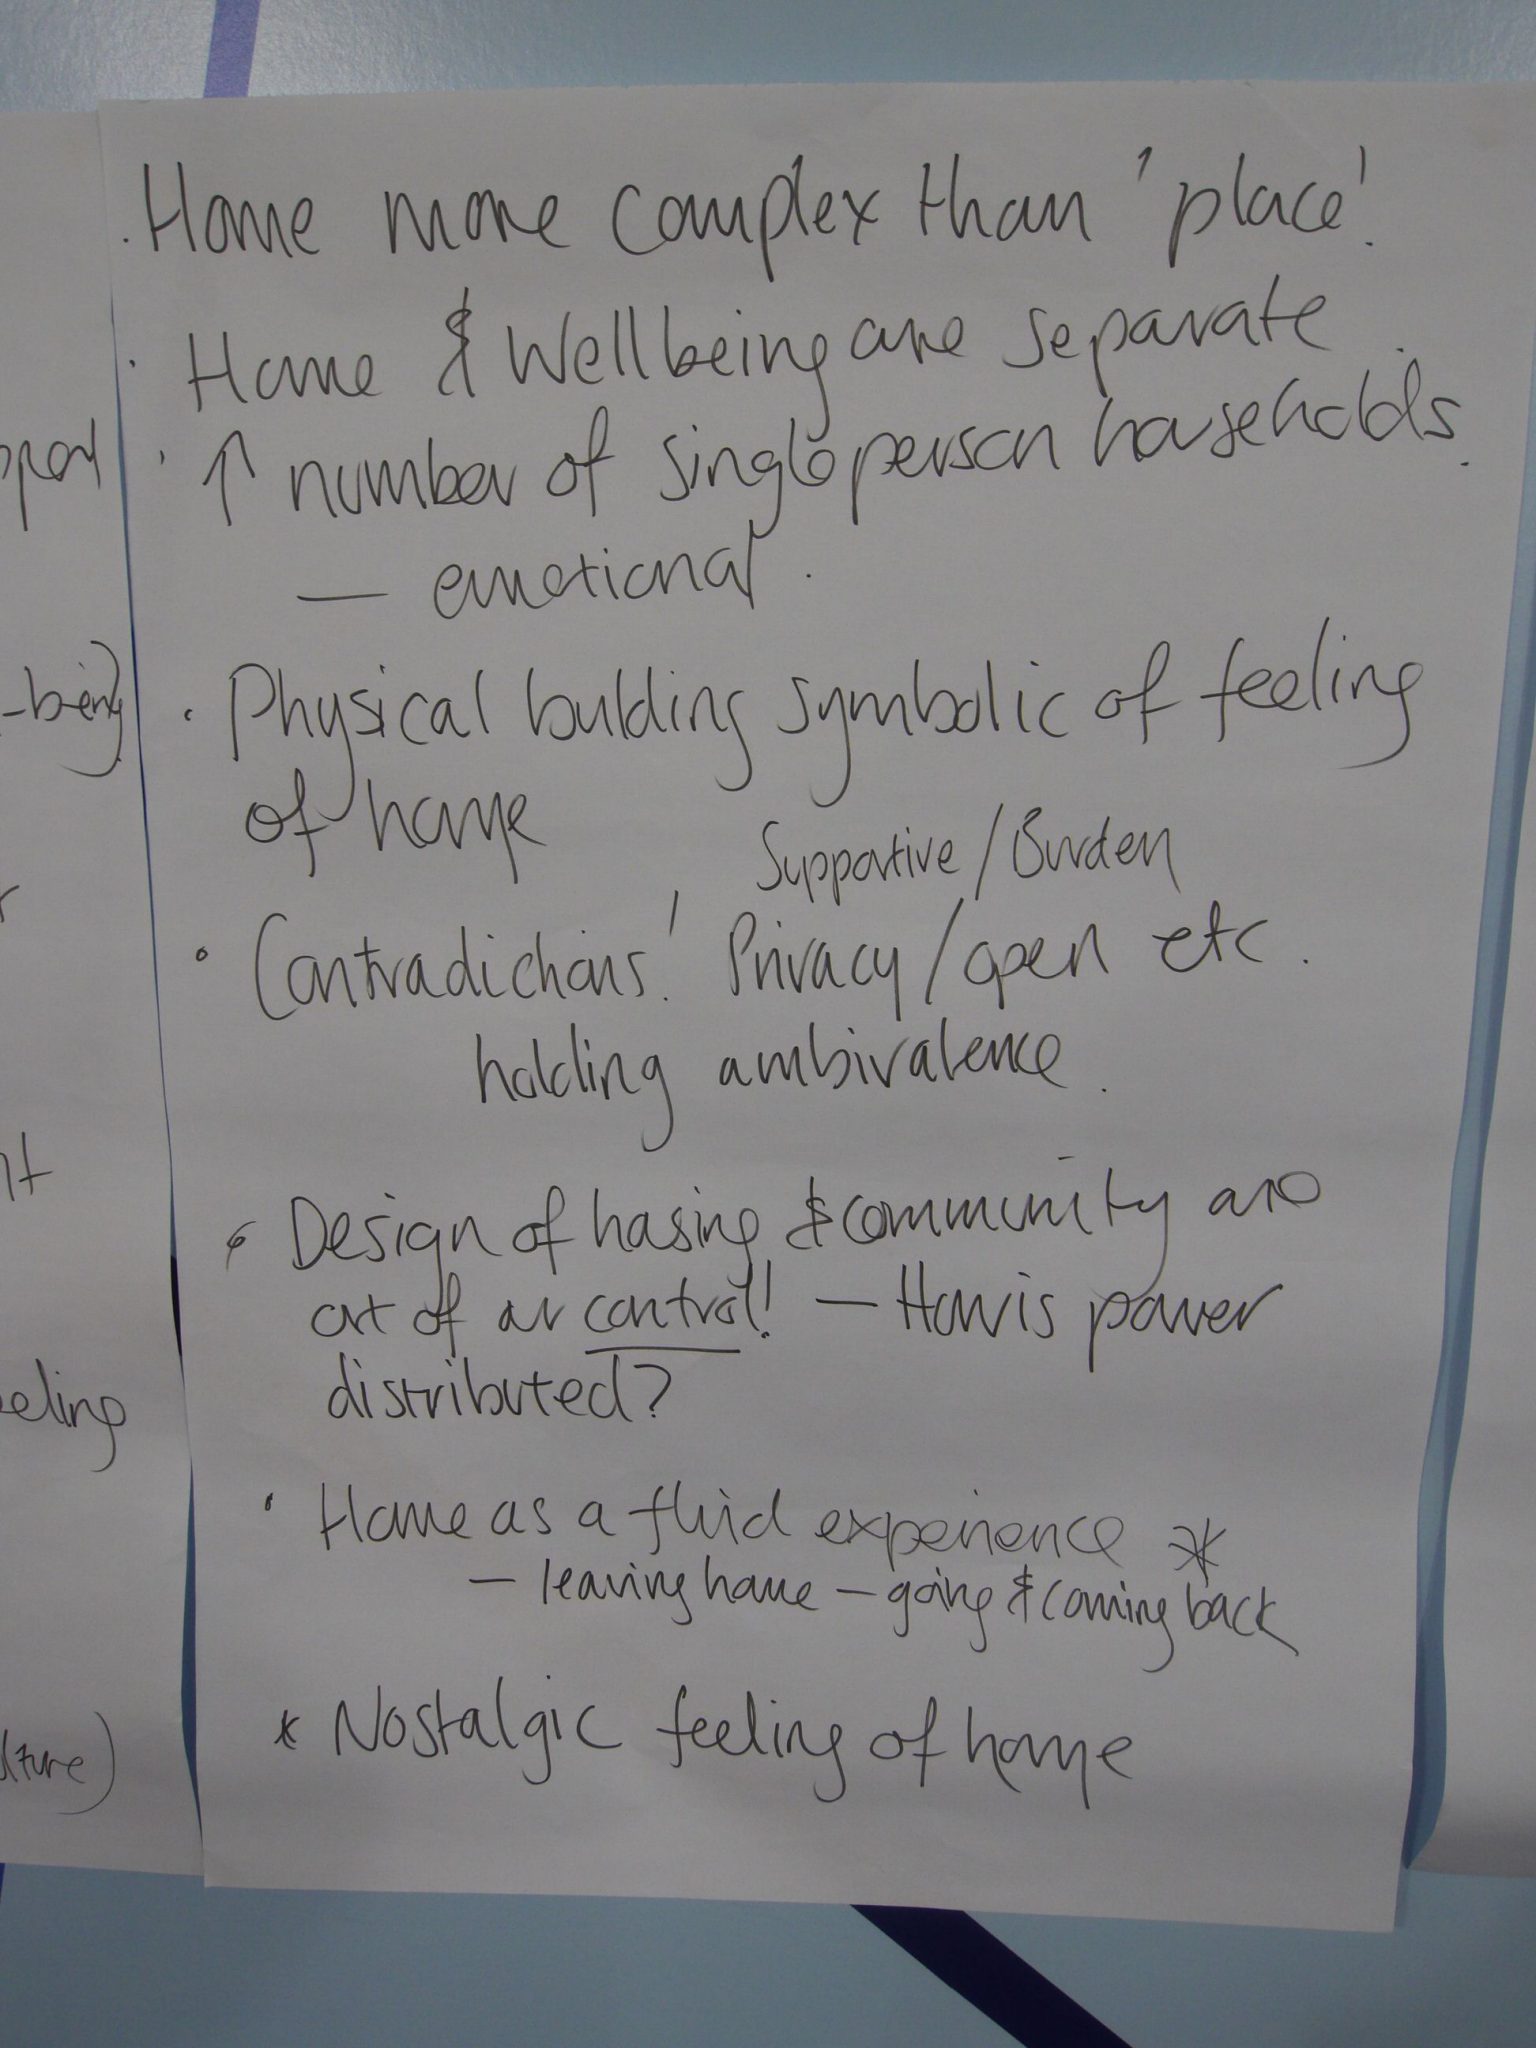 · Home more complex than 'place'.
· Home & Wellbeing are separate.
· ↑ number of single person households.
— emotional.
· Physical building symbolic of feeling
of home
Supportive / Burden
· Contradictions! Privacy / open etc.
holding ambivalence.
· Design of housing & community are
out of our control! — How is power
distributed?
· Home as a fluid experience *
— leaving home — going & coming back
* Nostalgic feeling of home
-being)
eeling